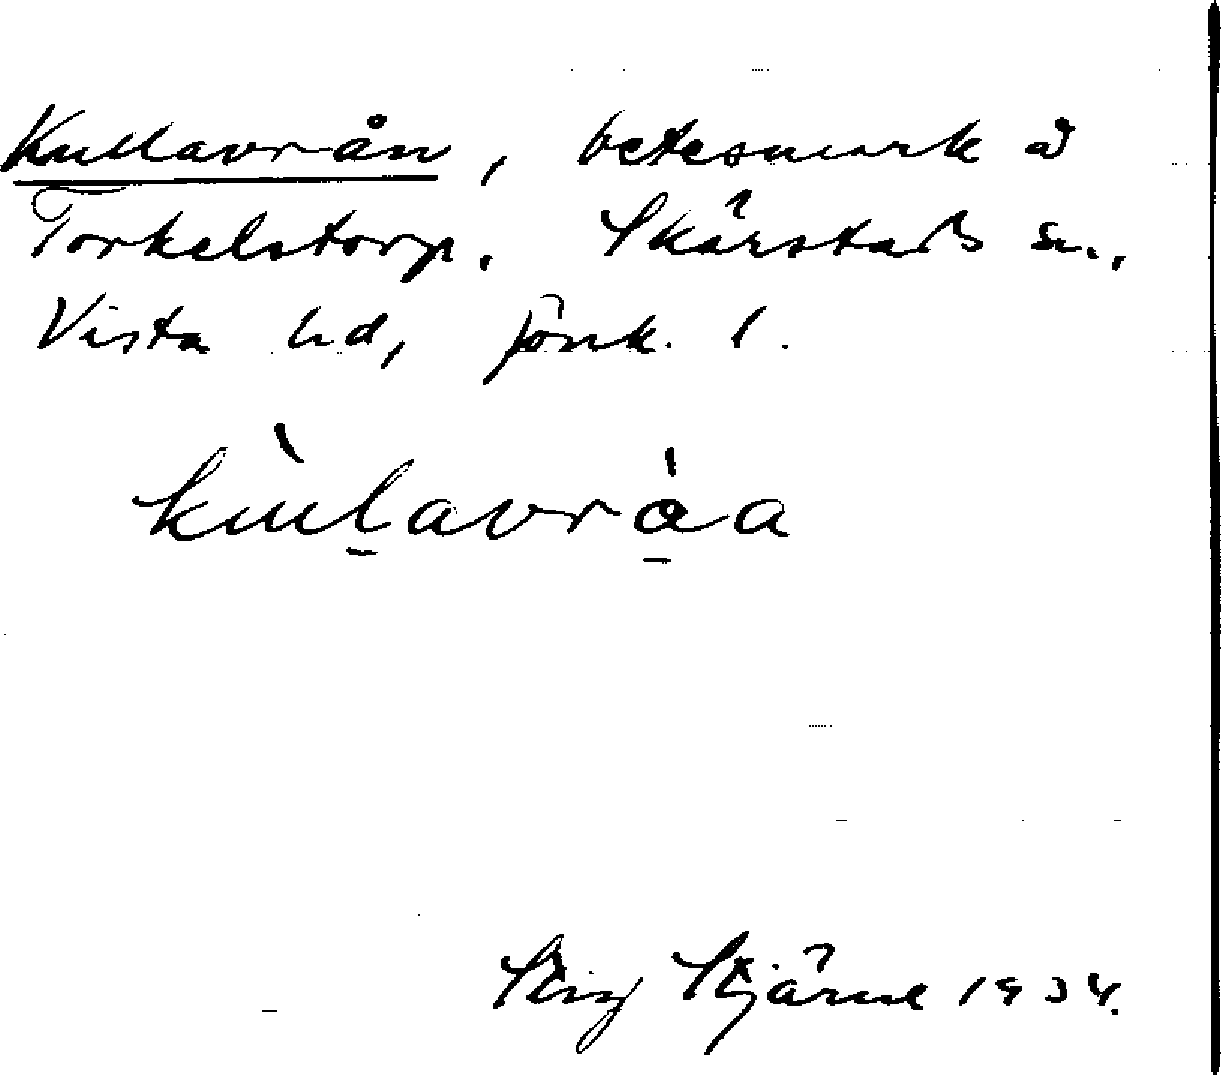 Kullavrån, betesmark å
Torkelstorp, Skärstads sn.,
Vista hd, Jönk. l.
kùl̠avrǻ̠a
Stig Stjärne 1934.